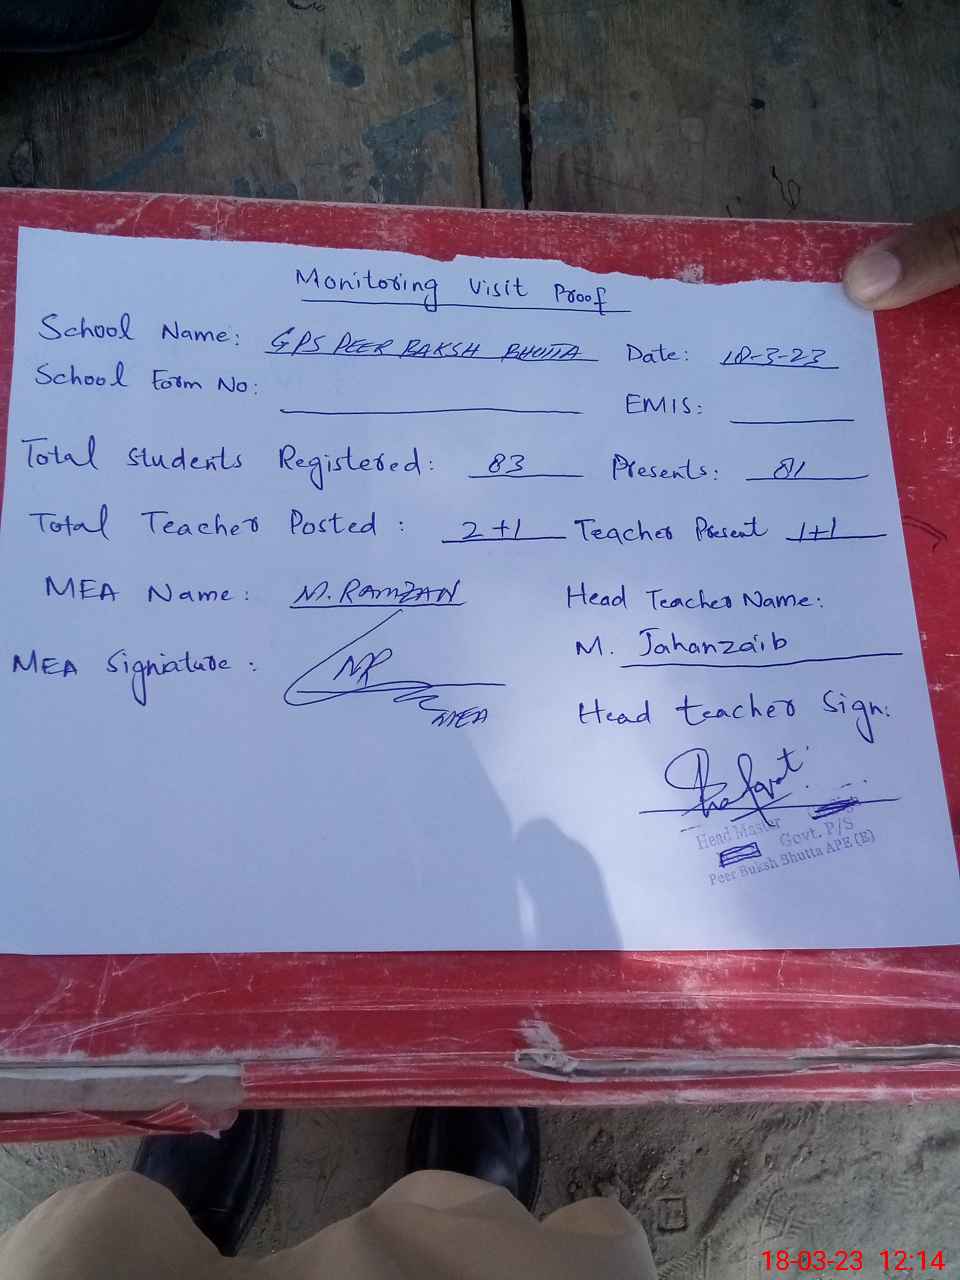 Monitoring Visit Proof
School Name: GPS PEER BAKSH BHUTTA Date: 18-3-23
School Form No:
EMIS:
Total Students Registered: 83 Presents: 81
Total Teacher Posted: 2+1 Teacher Present 1+1
MEA Name: M. RAMZAN Head Teacher Name:
M. Jahanzaib
MEA Signiature: MR
MEA
Head teacher Sign:
Head Master
Govt. P/S
Peer Buksh Bhutta APE (E)
18-03-23 12:14